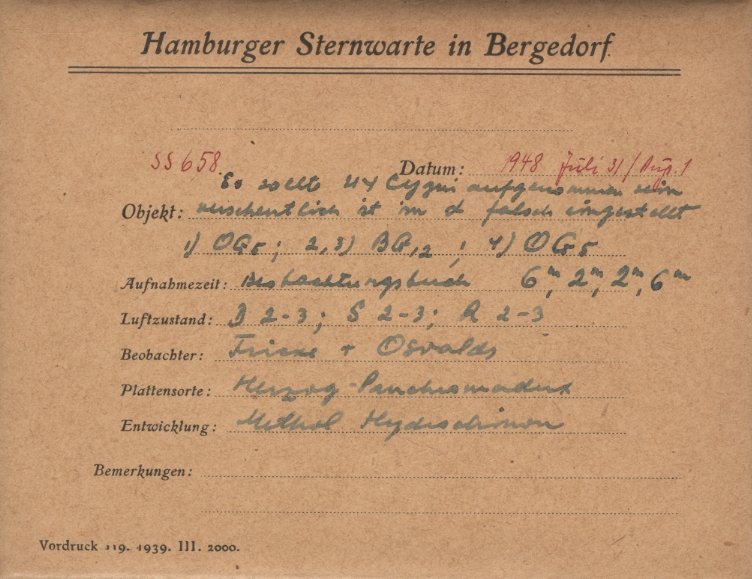 Hamburger Sternwarte in Bergedorf
SS 658 Datum: 1948 Juli 31 / Aug. 1
Es sollte Cygni aufgenommen sein
Objekt: versehentlich ist in α falsch eingestellt
1) OG5; 2,3) BG12; 4) OG5
Aufnahmezeit: Beobachtungsbuch 6m, 2m, 2m, 6m
Luftzustand: D 2-3; S 2-3; R 2-3
Beobachter: + Osvalds
Plattensorte: Herzog-
Entwicklung: Methol Hydrochinon
Bemerkungen:
Vordruck 119. 1939. III. 2000.